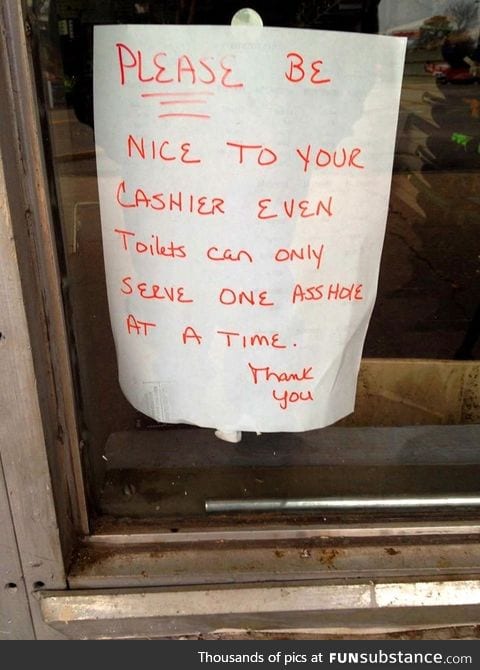 PLEASE BE
NICE TO YOUR
CASHIER EVEN
Toilets can only
SERVE ONE ASSHOLE
AT A TIME.
Thank
you
Thousands of pics at FUNsubstance.com